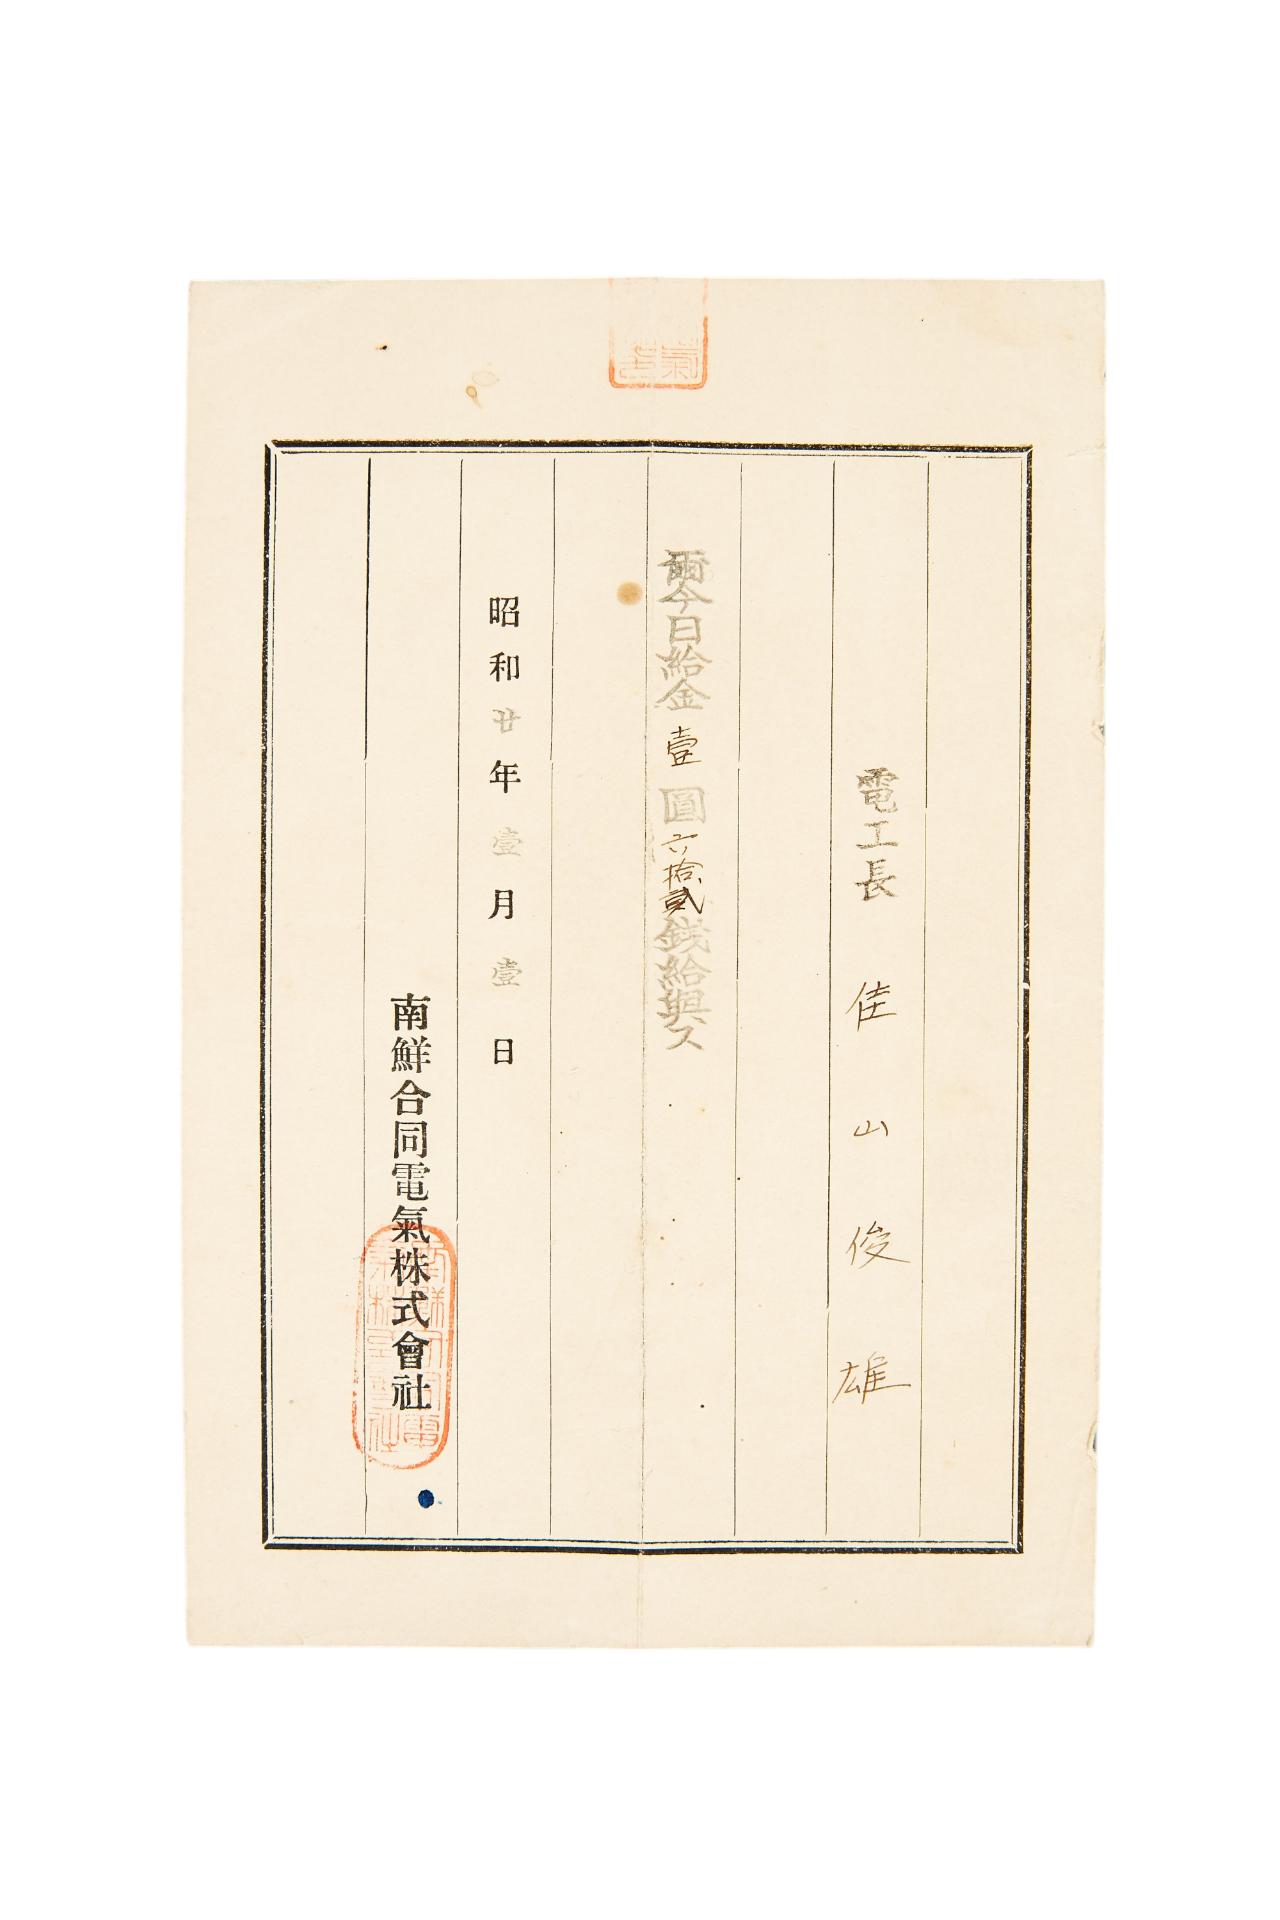 電工長 佳山俊雄
爾今日給金壹圓六拾貳銭給與ス
昭和廿年壹月壹日
南鮮合同電氣株式會社